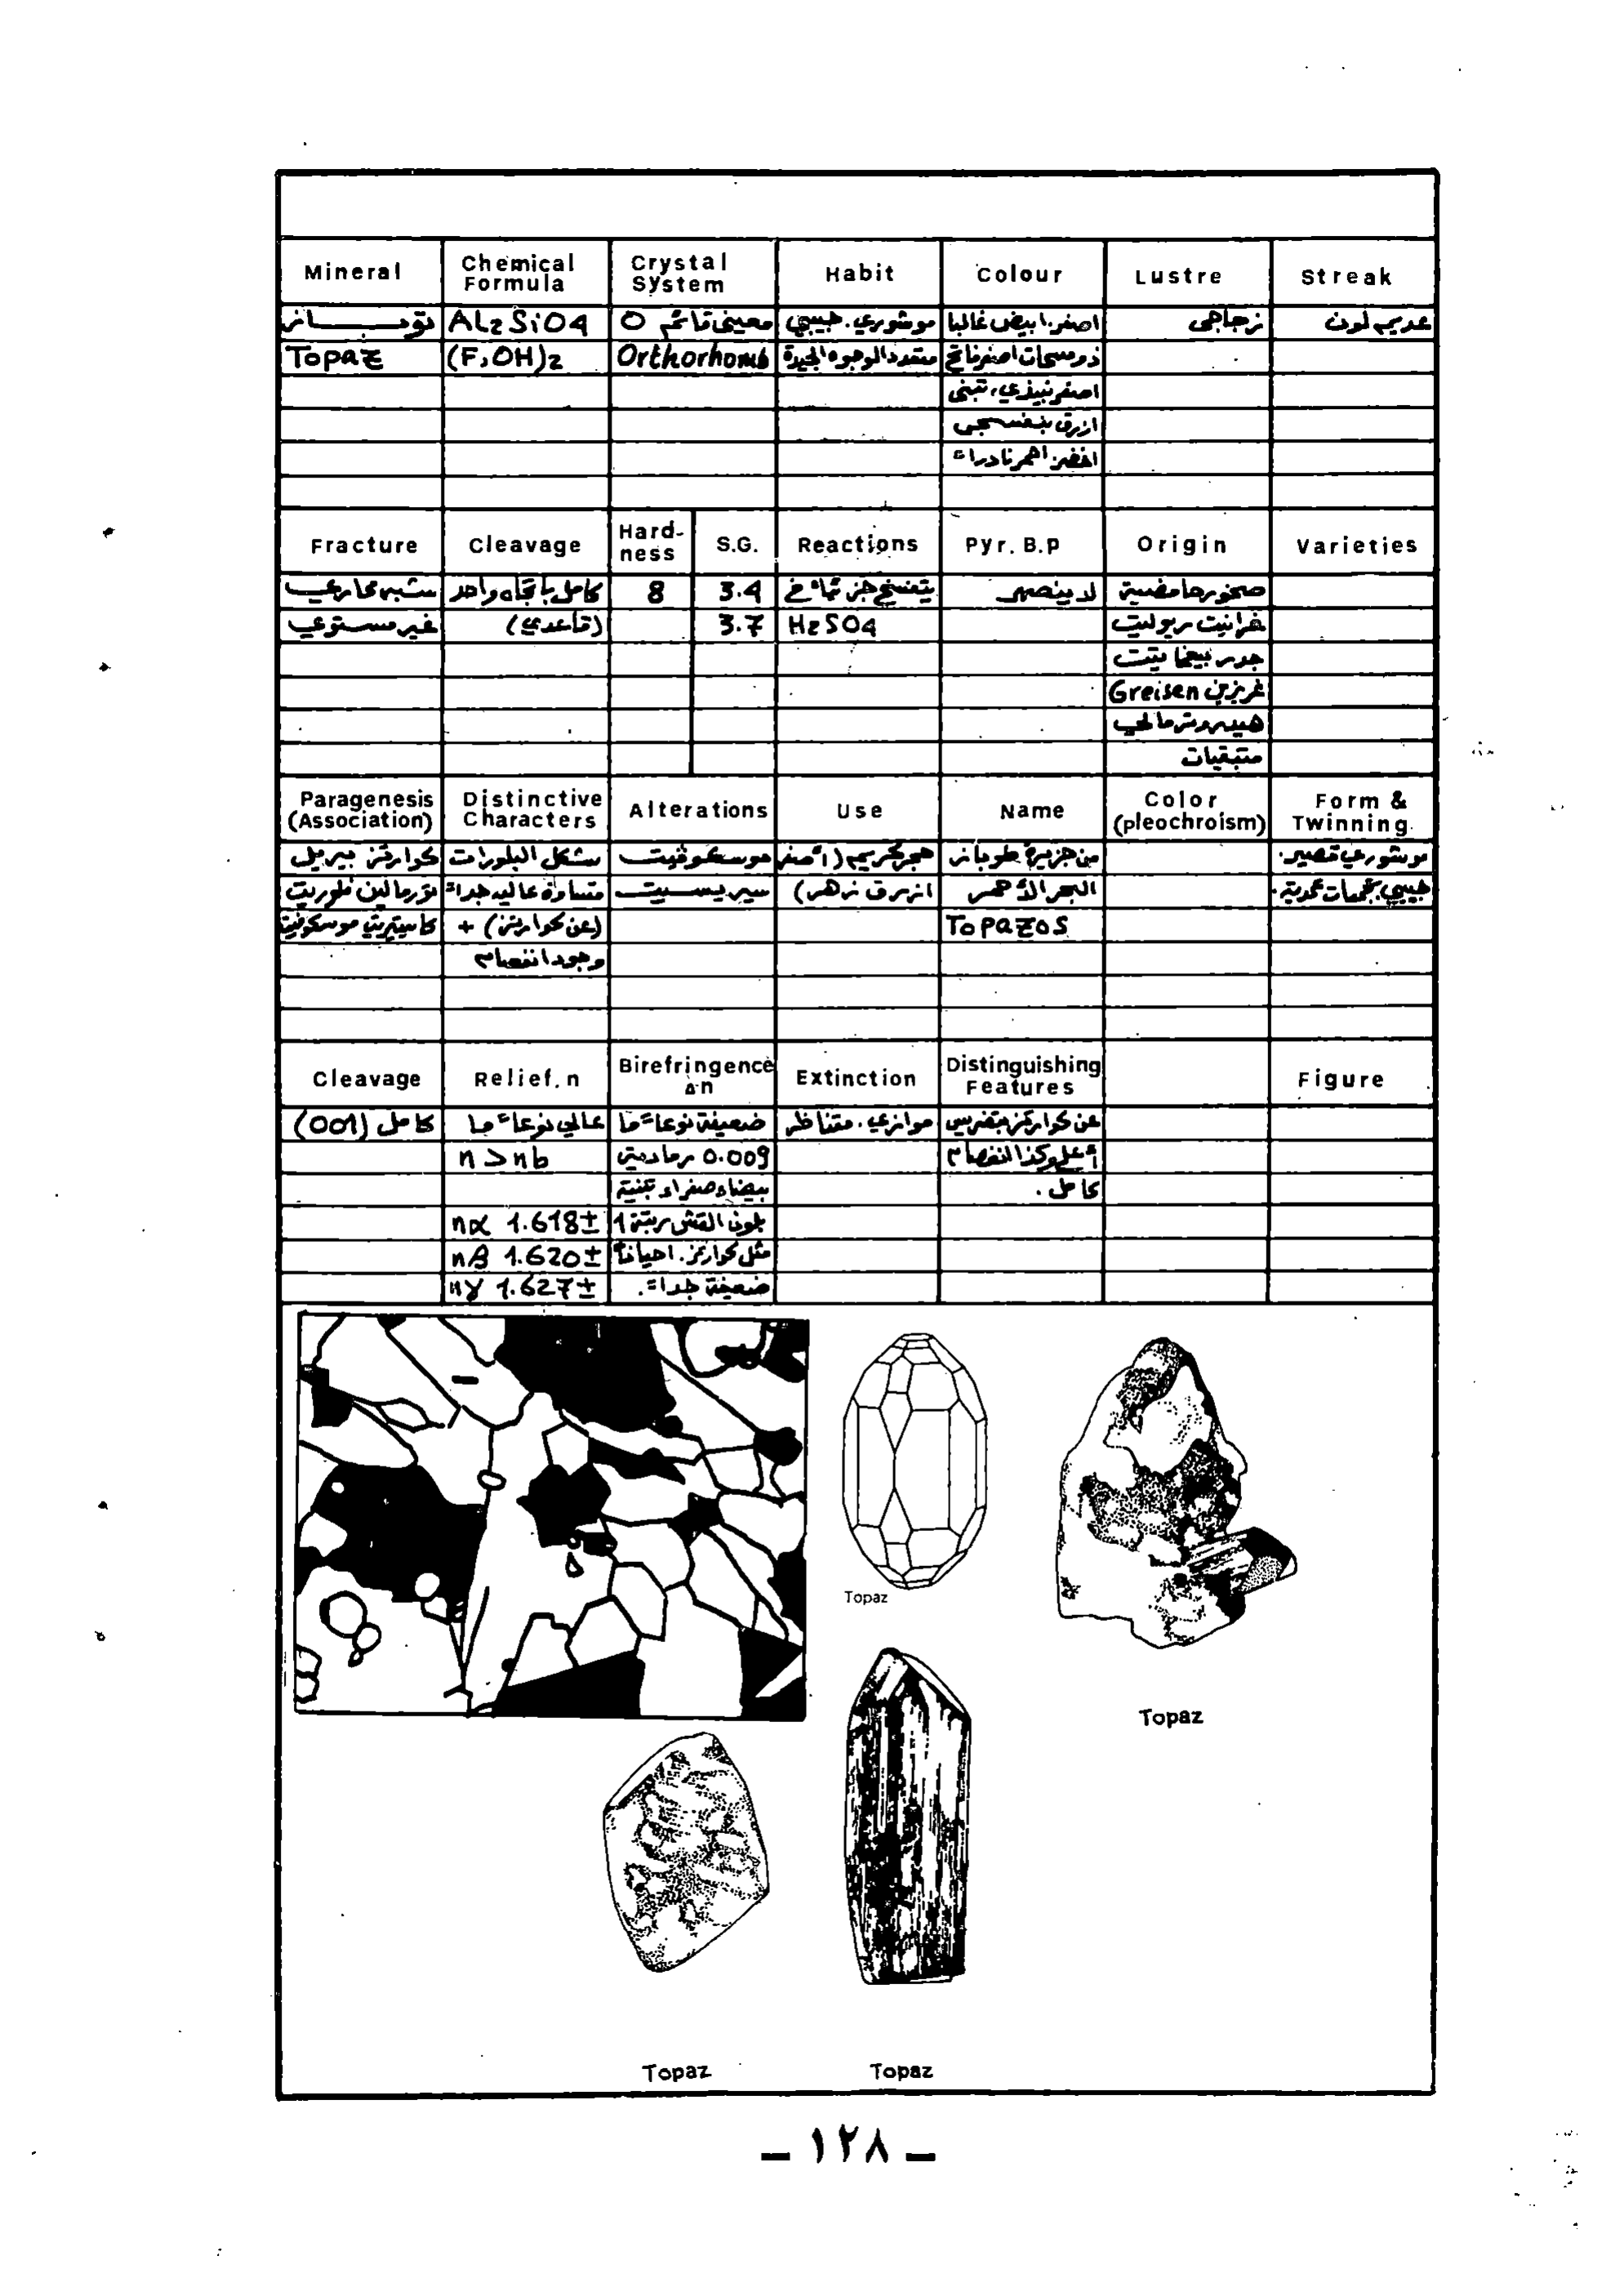 Mineral Chemical Formula Crystal System Habit Colour Lustre Streak
توبـــاز Al2SiO4 معيني قائم O موشوري. حبيبي اصفر. ابيض غالبا زجاجي عديم لون
Topaz (F,OH)2 Orthorhomb متعدد الوجوه الجيدة ذو مسحات اصفر فاتح
اصفر نبيذي، تبني
ازرق بنفسجي
اخضر احمر نادراً
Fracture Cleavage Hard-ness S.G. Reactions Pyr. B.p Origin Varieties
شبه محاري كامل باتجاه واحد 8 3.4 يتفسخ جزئياً في لا ينصهر صخور حامضية
غير مستوي (قاعدي) 3.7 H2SO4 غرانيت ريوليت
بيغماتيت
غريزن Greisen
هيدروترمالي
متبقيات
Paragenesis (Association) Distinctive Characters Alterations Use Name Color (pleochroism) Form & Twinning
كوارتز بيريل شكل البلورات موسكوفيت حجر كريم (أصفر من جزيرة طوباز موشوري قصير.
تورمالين فلوريت قساوة عالية جداً سيريسيت ازرق زهر) البحر الأحمر حبيبي. تجمعات عمدية.
كاسيتريت موسكوفيت (عن كوارتز) + Topazos
وجود انفصام
Cleavage Relief, n Birefringence Δn Extinction Distinguishing Features Figure
كامل (001) عالي نوعاً ما ضعيفة نوعاً ما موازي. متناظر عن كوارتز بتضريس
n > nb 0.009 رمادية أعلى وكذا انفصام
بيضاء صفراء تبنية كامل.
nα 1.618± بلون القش رتبة 1
nβ 1.620± مثل كوارتز. احياناً
nγ 1.627± ضعيفة جداً.
Topaz
Topaz
Topaz Topaz
– ١٢٨ –